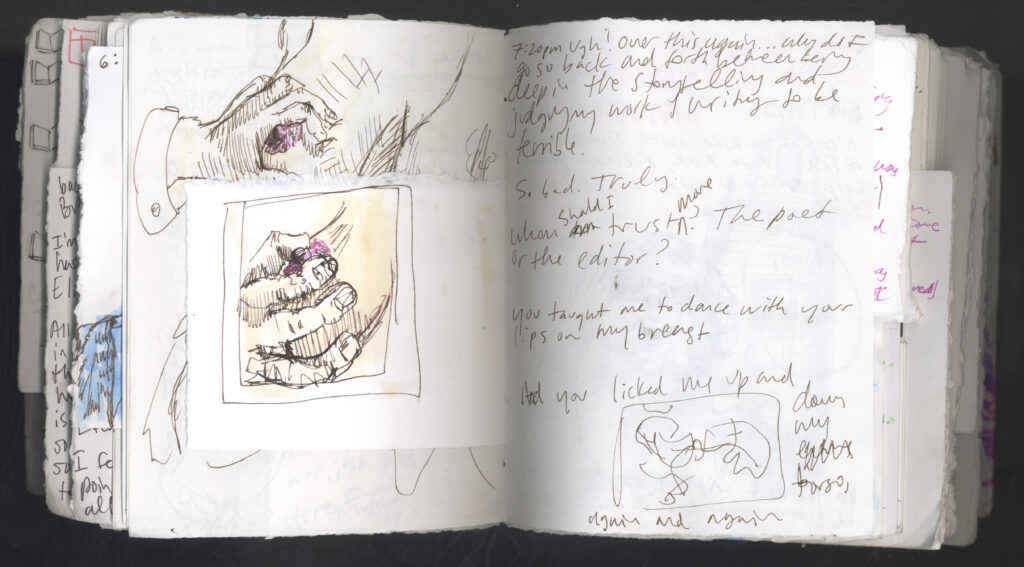 6:
I'm
All
in
is
so
I fe
poin
all
7:20pm Ugh! Over this again... why do I
go so back and forth between being
deep in the storytelling and
judging my work & writing to be
terrible.
So bad. Truly.
Whom should I trust more? The poet
or the editor?
you taught me to dance with your
lips on my breast
And you licked me up and
down
my
torso,
again and again